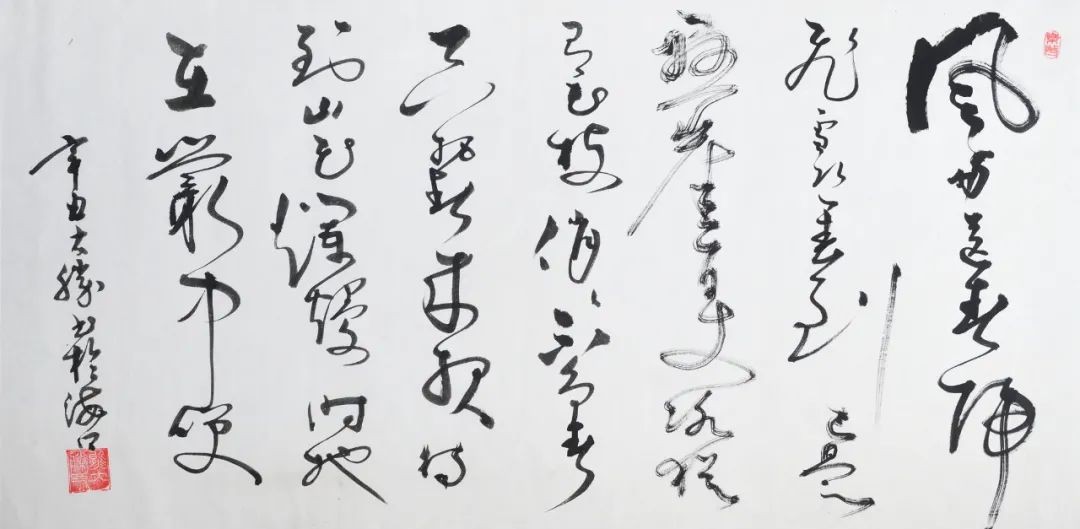 风雨送春归
飞雪迎春到已是
悬崖百丈冰犹
有花枝俏俏也不争春
只把春来报待
到山花烂漫时她
在丛中笑
辛丑大胜书于海口